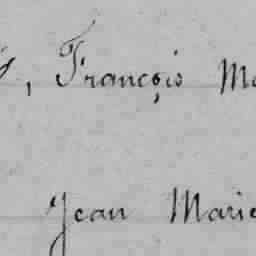 , François
Jean Marie